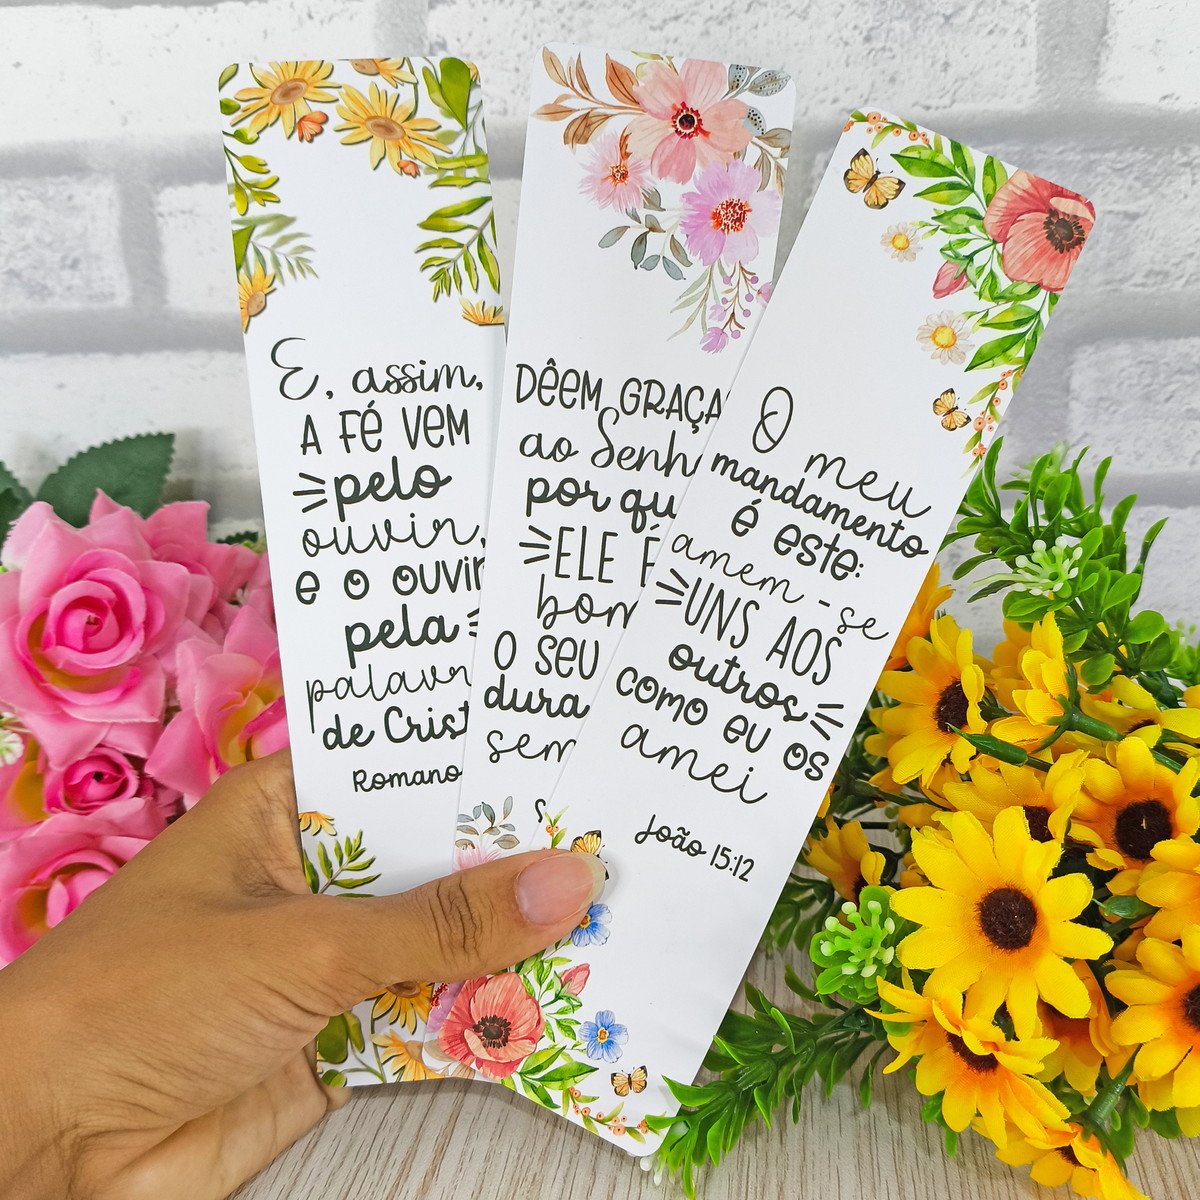 E, assim,
A FÉ VEM
pelo
ouvir,
e o ouvir
pela
palavr
de Crist
Romano
DÊEM GRAÇA
ao Senh
por qu
ELE É
bom
O SEU
dura
sem
O meu
mandamento
é este:
amem-se
UNS AOS
outros
como eu os
amei
João 15:12